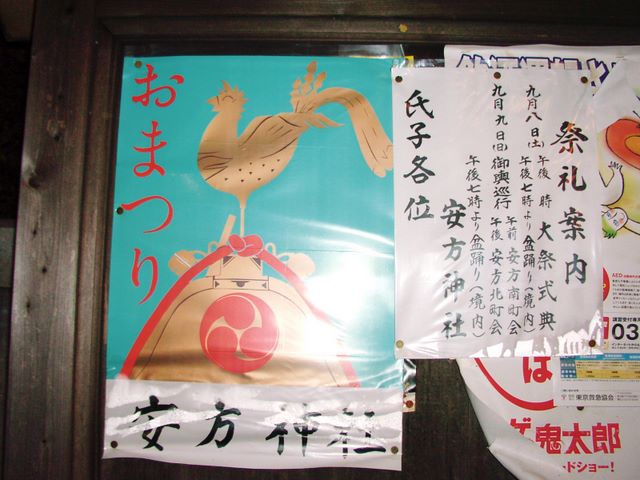 おまつり
安方神社
祭礼案内
九月八日(土)午後 時 大祭式典
午後七時より盆踊り(境内)
九月九日(日)御輿巡行 午前 安方南町会
午後 安方北町会
午後七時より盆踊り(境内)
安方神社
氏子各位
AED
03
東京救急協会
は
ゲ鬼太郎
ードショー!